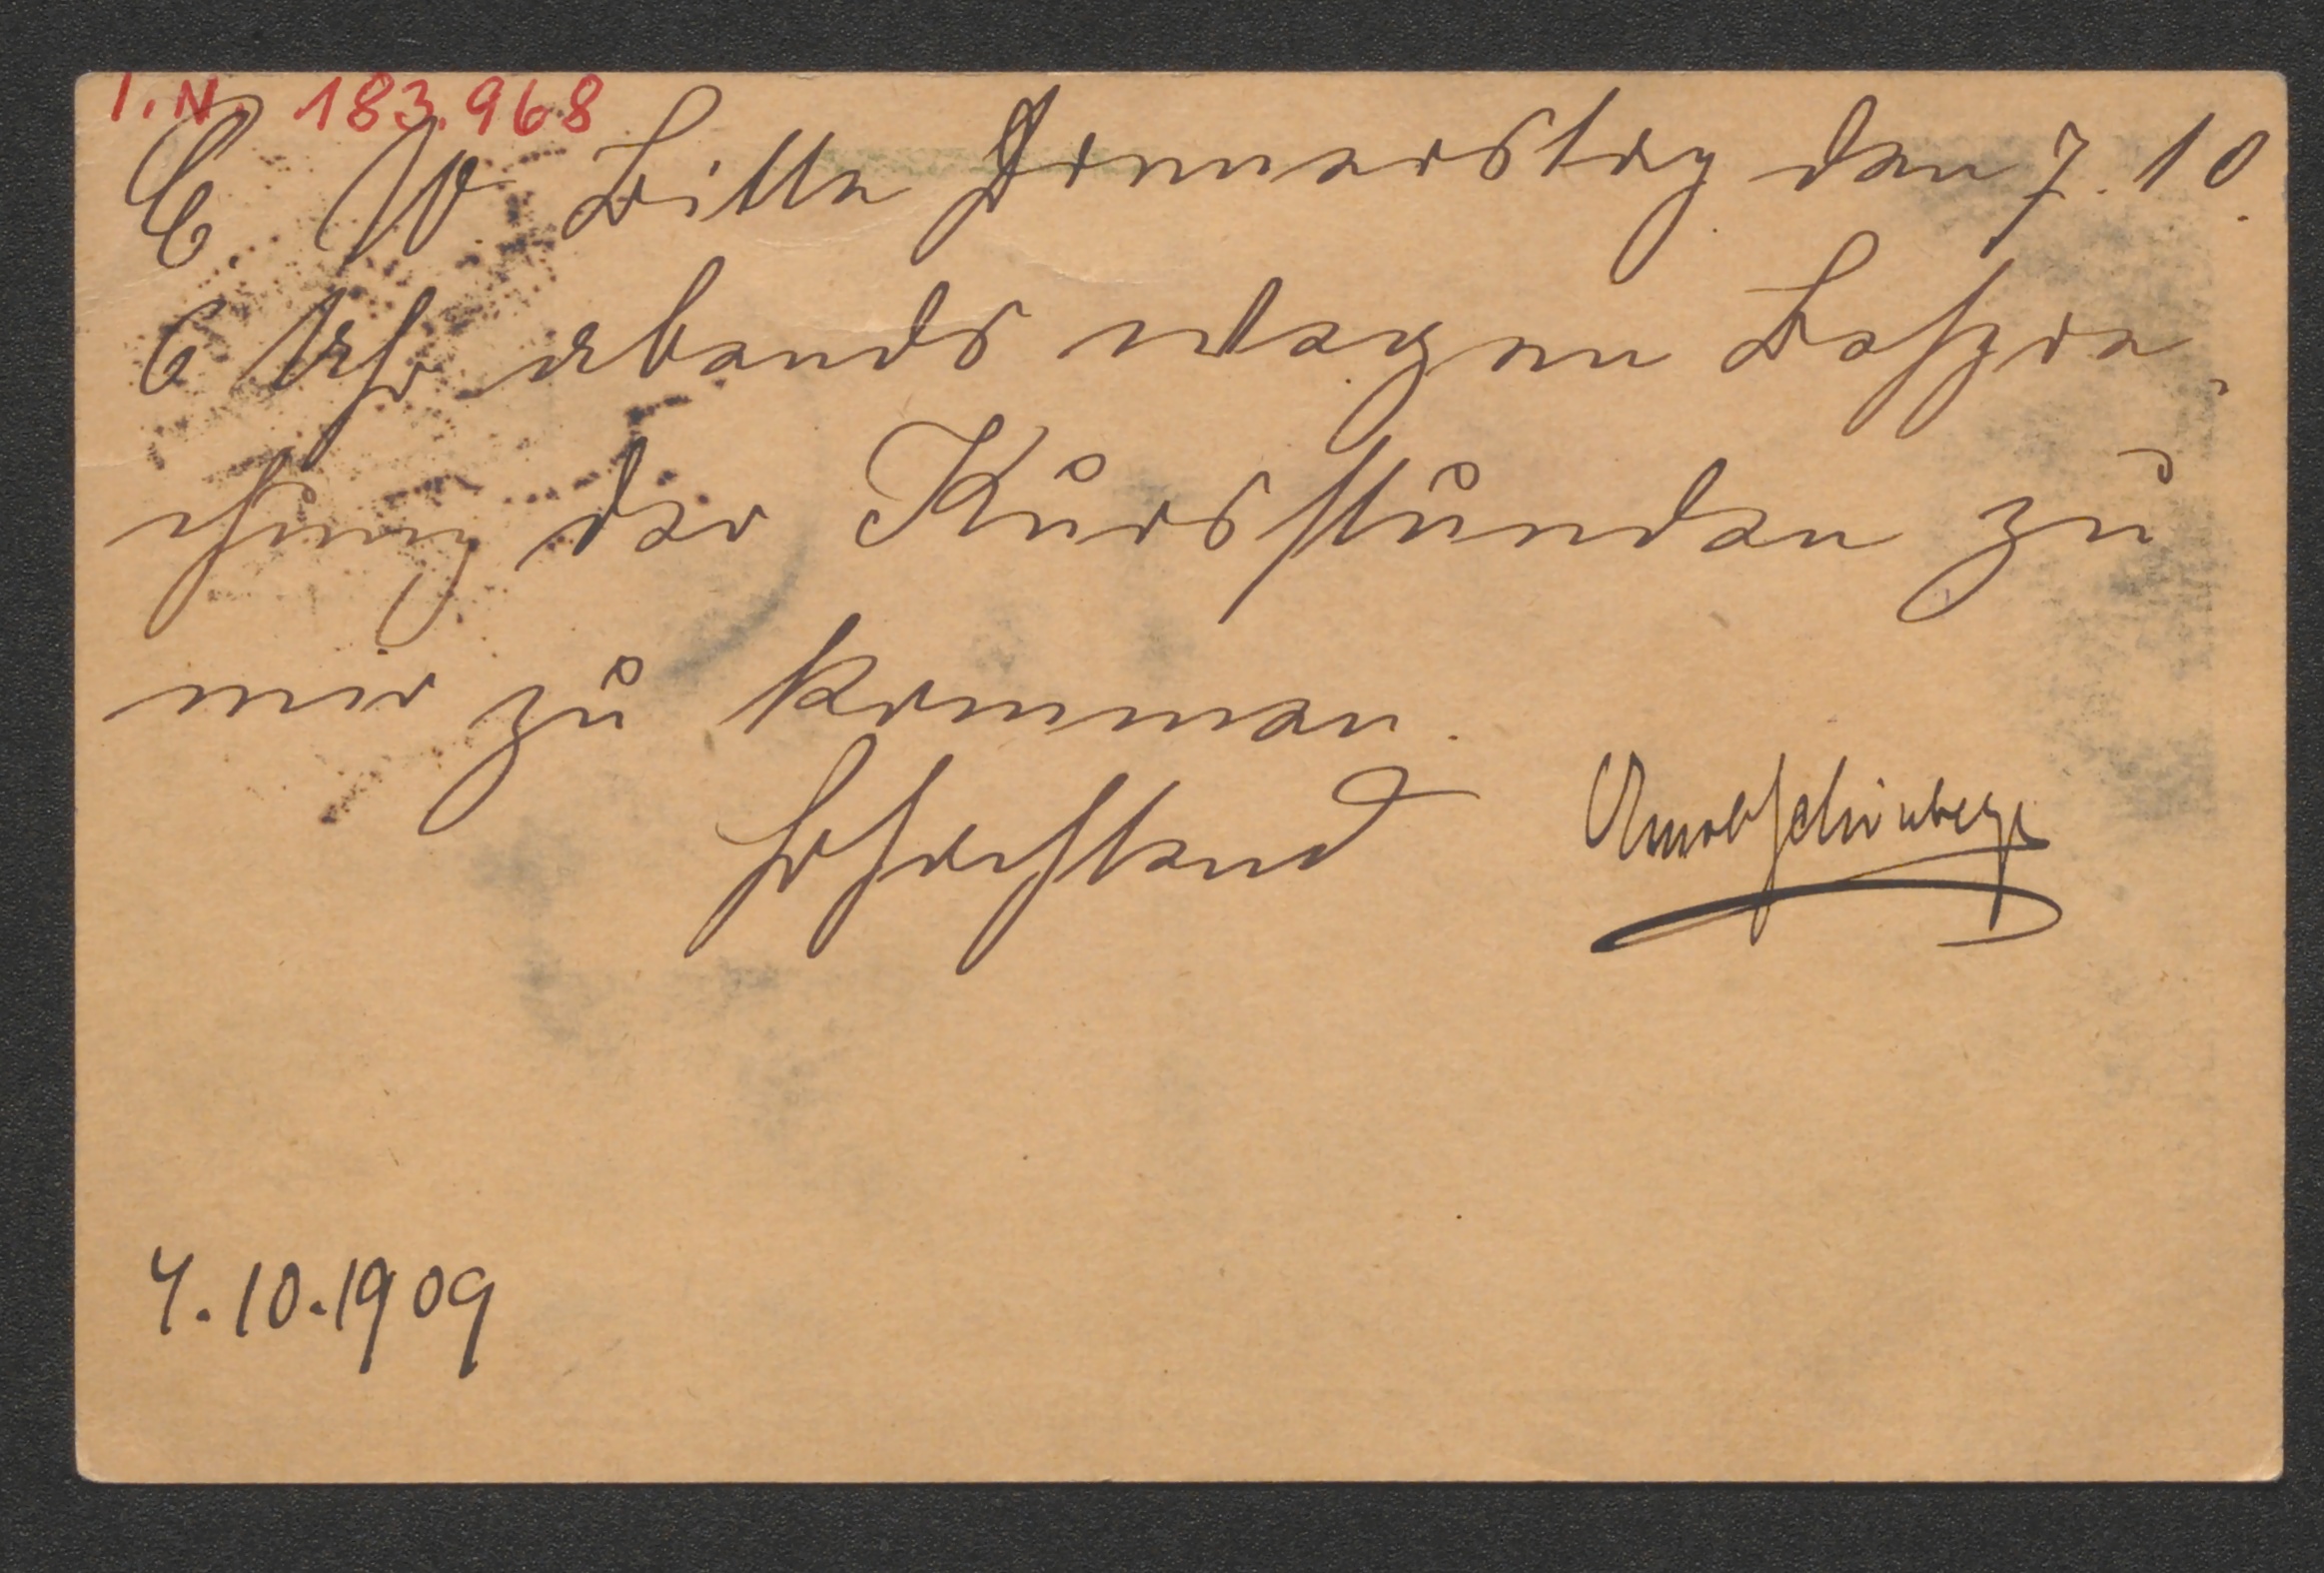 I.N. 183.968
E. W. Bitte Donnerstag den 7. 10.
6 Uhr abends wegen Bespre-
chung der Kursstunden zu
mir zu kommen.
Arnold Schönberg
4.10.1909